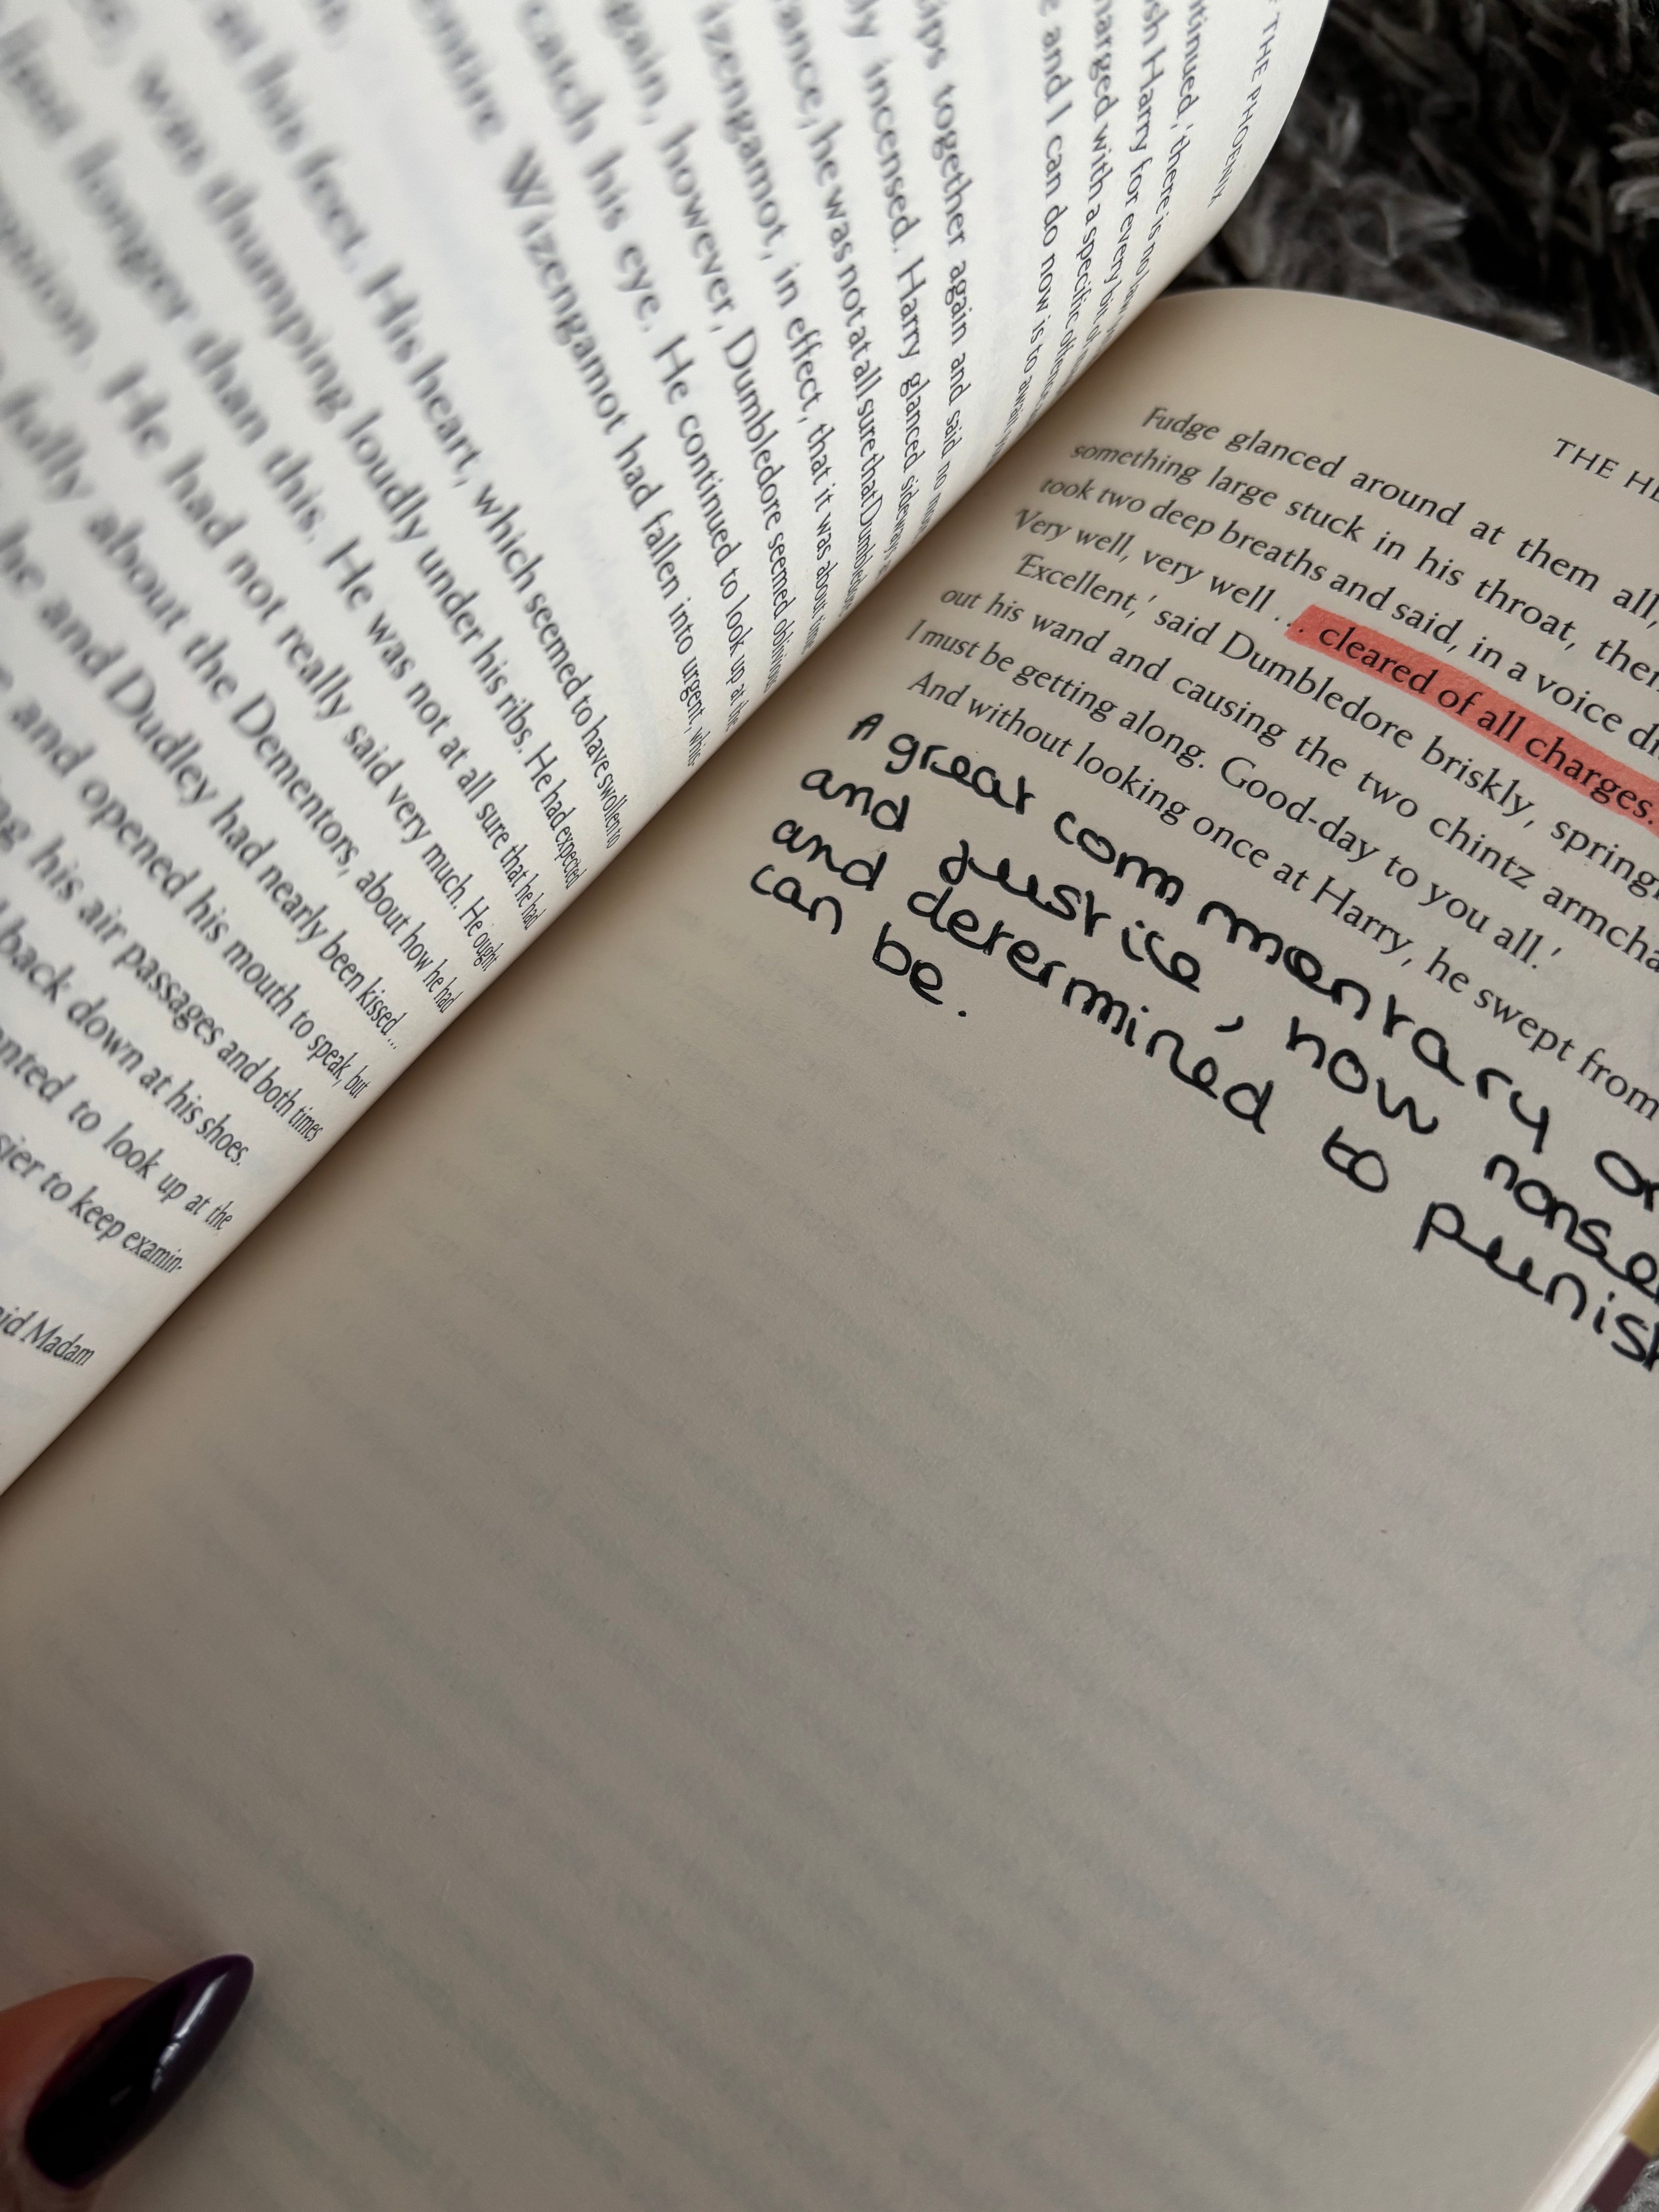 THE PHOENIX
tinued, 'there is no law
sh Harry for every bit of
harged with a specific offence
e and I can do now is to await
ips together again and said no more
ly incensed. Harry glanced sideways
ance, he was not at all sure that Dumbledore
izengamot, in effect, that it was about time
gain, however, Dumbledore seemed oblivious
catch his eye. He continued to look up at the
entire Wizengamot had fallen into urgent, whis-
at his feet. His heart, which seemed to have swollen to
was thumping loudly under his ribs. He had expected
last longer than this. He was not at all sure that he had
ession. He had not really said very much. He ought
fully about the Dementors, about how he had
he and Dudley had nearly been kissed ...
and opened his mouth to speak, but
ng his air passages and both times
back down at his shoes.
nted to look up at the
sier to keep examin-
aid Madam
THE HE
Fudge glanced around at them all,
something large stuck in his throat, then
took two deep breaths and said, in a voice di
'Very well, very well ... cleared of all charges.
'Excellent,' said Dumbledore briskly, spring
out his wand and causing the two chintz armcha
I must be getting along. Good-day to you all.'
And without looking once at Harry, he swept from
A great commentary o
and justice, how nonse
and determined to punish
can be.